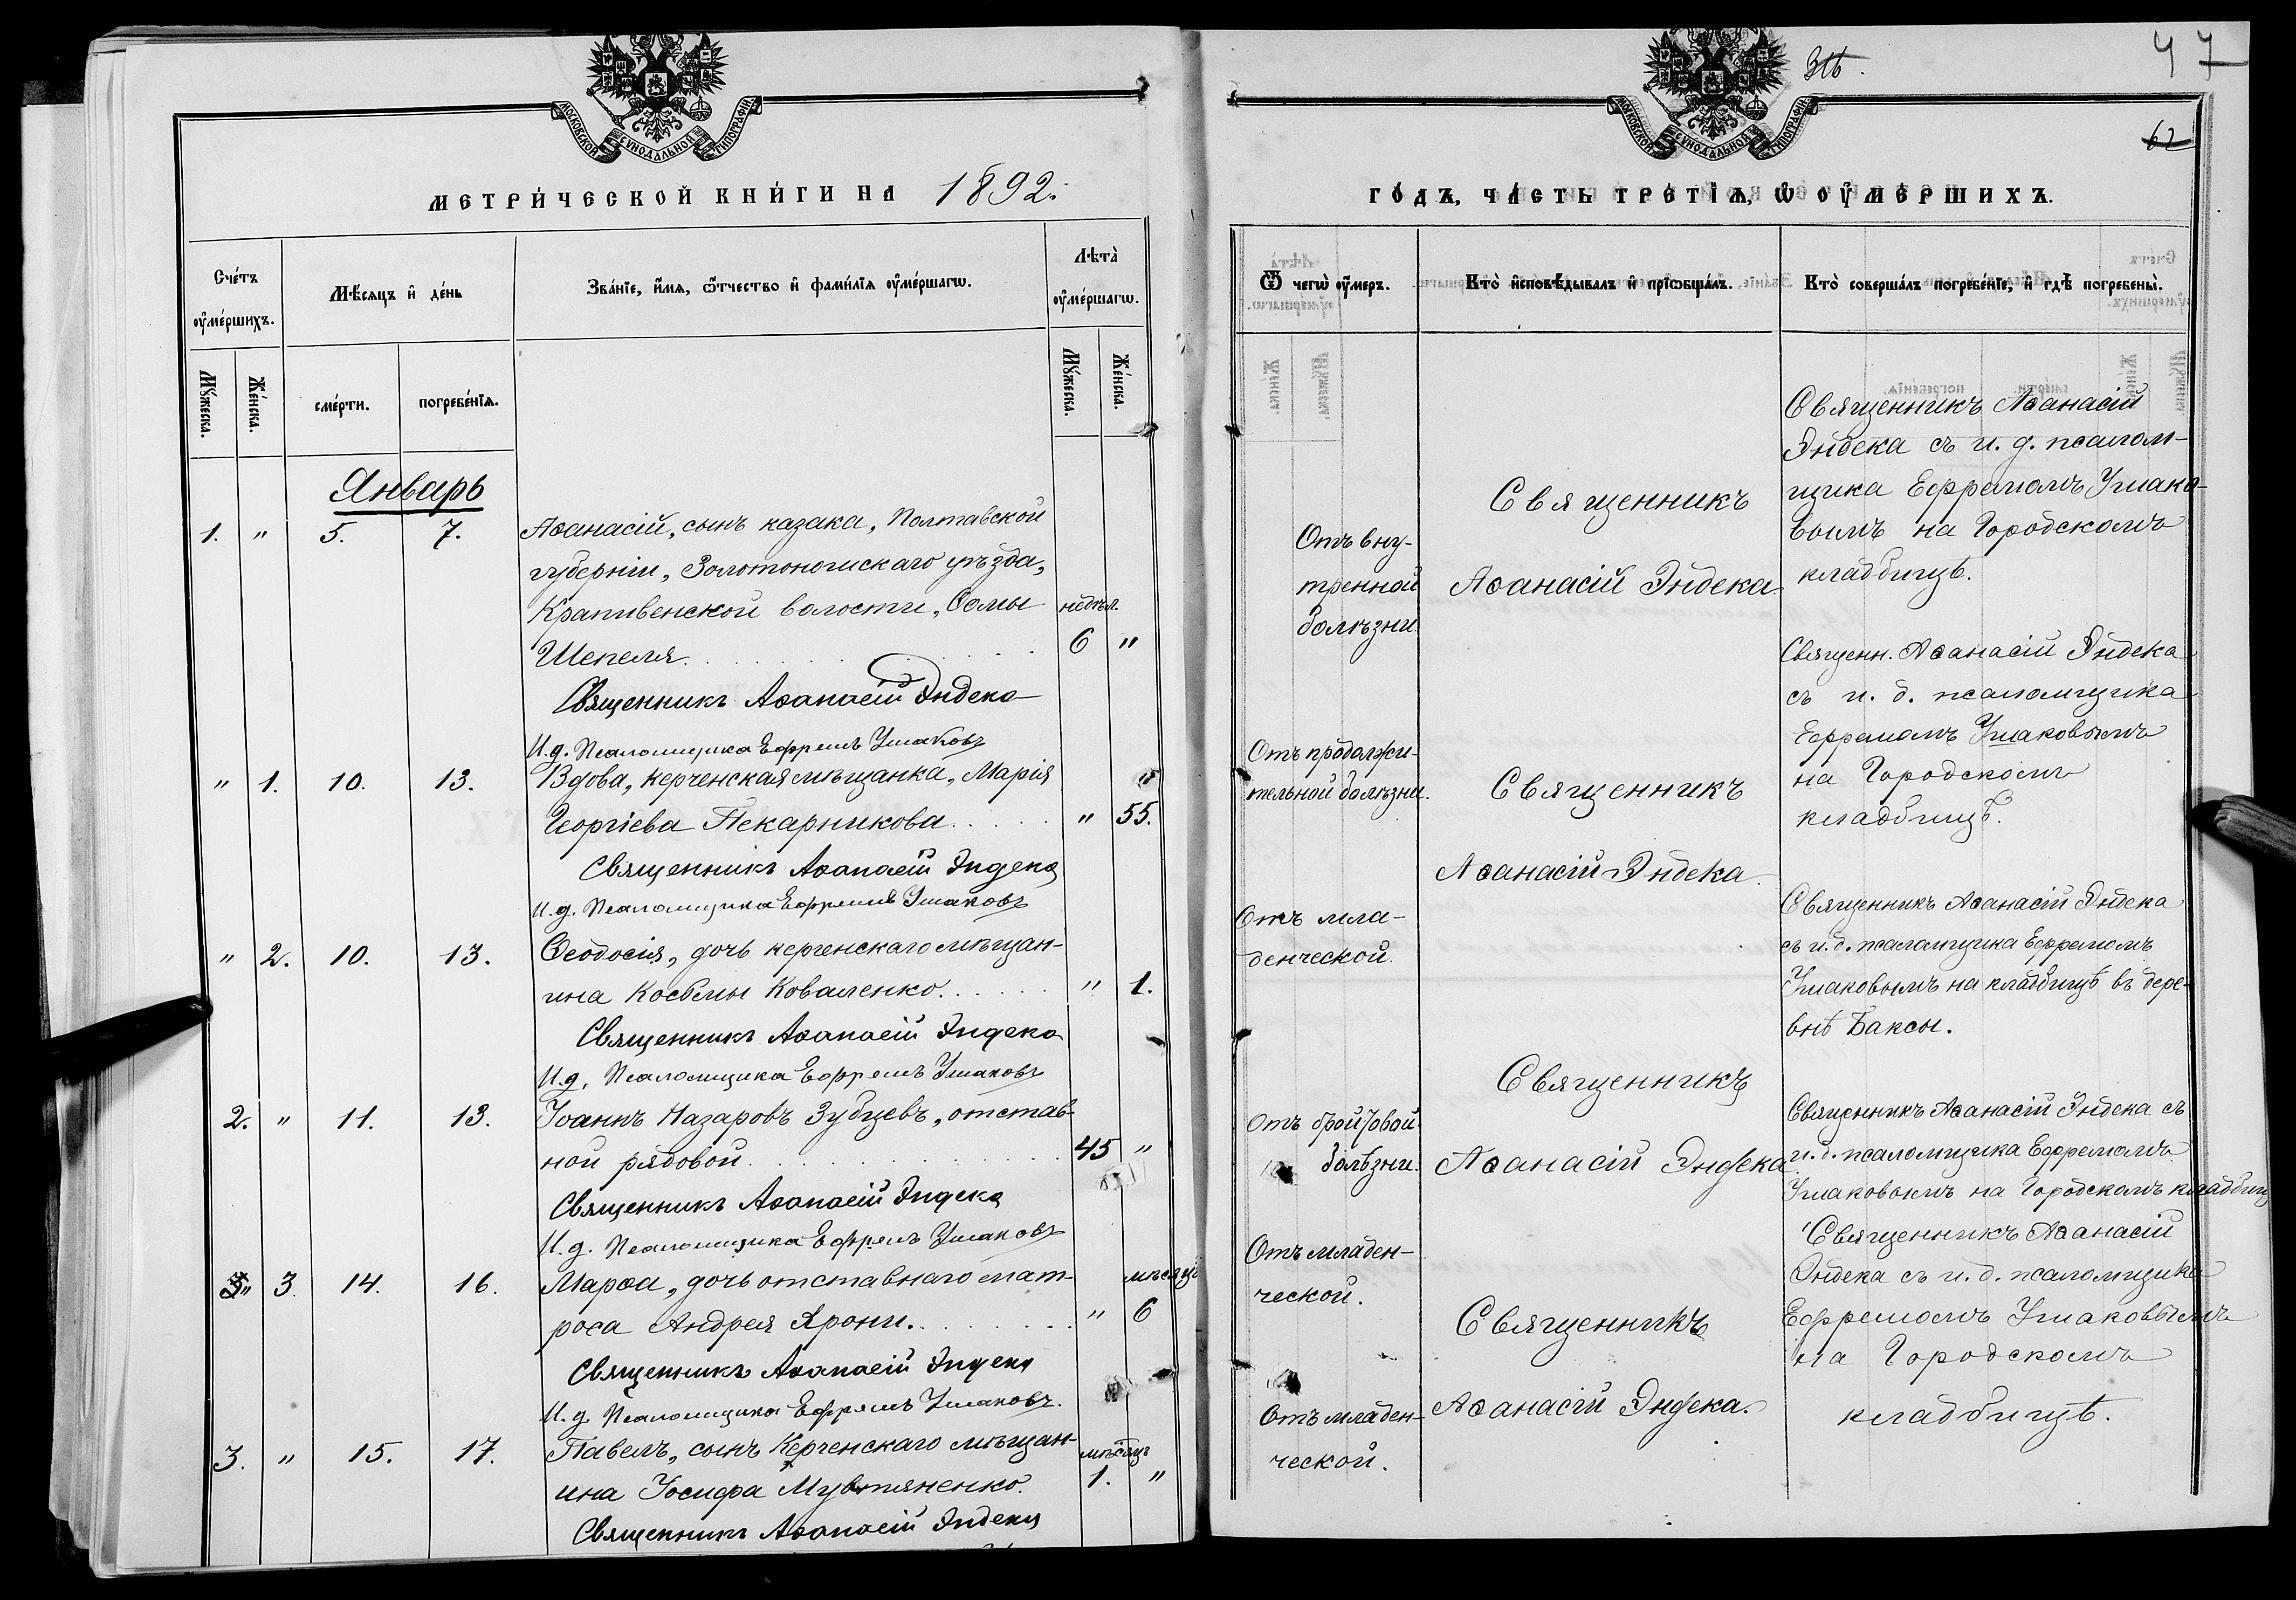 МОСКОВСКОЙ СѴНОДАЛЬНОЙ ТИПОГРАФІИ
МЕТРИ́ЧЕСКОЙ КНИ́ГИ НА 1892.
Сче́тъ ᲂу҆ме́ршихъ.
Мѣ́сяцъ и҆ де́нь
Зва́нїе, и҆́мѧ, ѻ҆́тчество и҆ фами́лїѧ ᲂу҆ме́ршагѡ.
Лѣта̀ ᲂу҆ме́ршагѡ.
Мꙋ́жеска.
Же́нска.
сме́рти.
погребе́нїѧ.
Мꙋ́жеска.
Же́нска.
Январь
1. " 5. 7. Аѳанасій, сынъ казака, Полтавской
губерніи, Золотоношскаго уѣзда,
Крапивенской волости, Сомы недѣл.
Шепеля. 6 "
Священникъ Аѳанасій Эндека
И.д. Псаломщика Ефремъ Ушаковъ
" 1. 10. 13. Вдова, керченская мѣщанка, Марія
Георгіева Пекарникова. " 55.
Священникъ Аѳанасій Эндека
И.д. Псаломщика Ефремъ Ушаковъ
" 2. 10. 13. Ѳеодосія, дочь керченскаго мѣщан-
ина Косьмы Коваленко. " 1.
Священникъ Аѳанасій Эндека
И.д. Псаломщика Ефремъ Ушаковъ
2. " 11. 13. Іоаннъ Назаровъ Зубцевъ, отстав-
ной рядовой. 45 "
Священникъ Аѳанасій Эндека
И.д. Псаломщика Ефремъ Ушаковъ
" 3. 14. 16. Марѳа, дочь отставнаго мат- мѣсяцъ
роса Андрея Яроши. " 6
Священникъ Аѳанасій Эндека
И.д. Псаломщика Ефремъ Ушаковъ.
3. " 15. 17. Павелъ, сынъ Керченскаго мѣщан- мѣсяцъ
ина Іосифа 1. "
Священникъ Аѳанасій Эндека
47
62
МОСКОВСКОЙ СѴНОДАЛЬНОЙ ТИПОГРАФІИ
ГО́ДЪ, ЧА́СТЬ ТРЕ́ТІѦ, Ѡ҆ ОУ҆МЕ́РШИХЪ.
Ѿ чегѡ̀ ᲂу҆́меръ.
Кто̀ и҆сповѣ́дывалъ и҆ прїѡбща́лъ.
Кто̀ соверша́лъ погребе́нїе, и҆ гдѣ̀ погребены̀.
Отъ вну-
тренной
болѣзни.
Священникъ
Аѳанасій Эндека.
Священникъ Аѳанасій
Эндека съ и. д. псалом-
щика Ефремомъ Ушако-
вымъ на Городскомъ
кладбищѣ.
Отъ продолжи-
тельной болѣзни.
Священникъ
Аѳанасій Эндека.
Священн. Аѳанасій Эндека
съ и. д. псаломщика
Ефремомъ Ушаковымъ
на Городскомъ
кладбищѣ.
Отъ мла-
денческой.
Священникъ Аѳанасій Эндека
съ и. д. псаломщика Ефремомъ
Ушаковымъ на кладбищѣ въ дере-
внѣ Баксы.
Отъ
болѣзни.
Священникъ
Аѳанасій Эндека
Священникъ Аѳанасій Эндека съ
и. д. псаломщика Ефремомъ
Ушаковымъ на Городскомъ кладбищ
Отъ младен-
ческой.
Священникъ
Аѳанасій Эндека.
Священникъ Аѳанасій
Эндека съ и. д. псаломщика
Ефремомъ Ушаковымъ
на Городскомъ
кладбищѣ.
Отъ младен-
ческой.